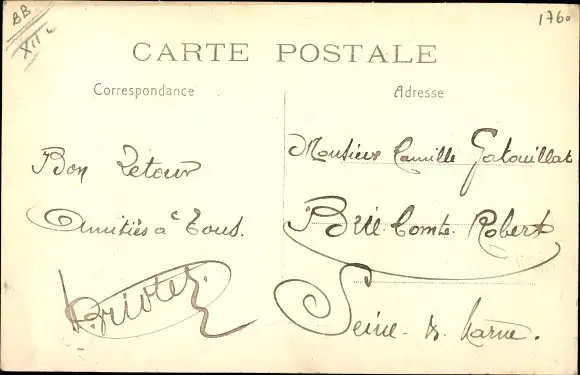 BB
XII
1760
CARTE POSTALE
Correspondance
Adresse
Bon retour
Amitiés à tous.
Monsieur Camille Gatouillat
Brie-Comte-Robert
Seine-&-Marne.